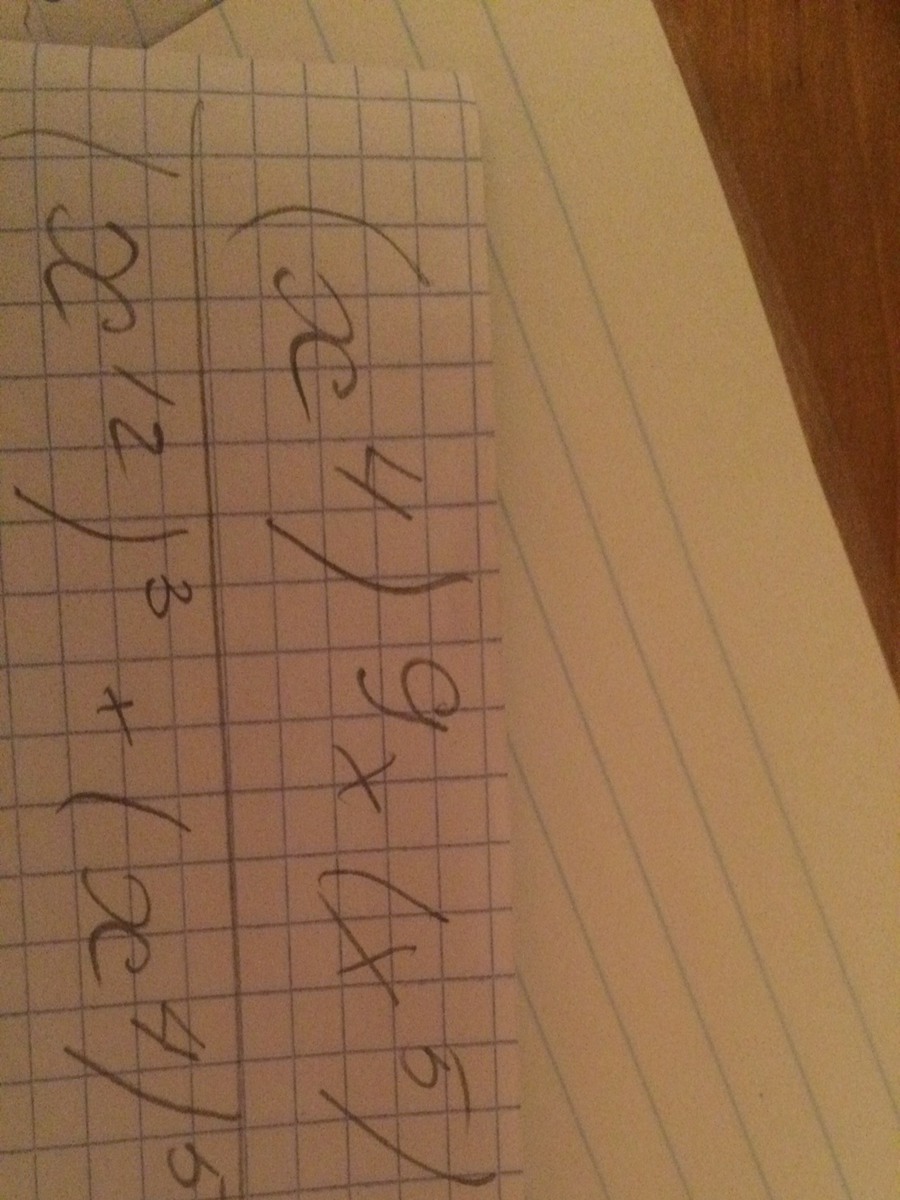 (x⁴)⁹ × (x⁵)
(x¹²)³ × (x⁴)⁵